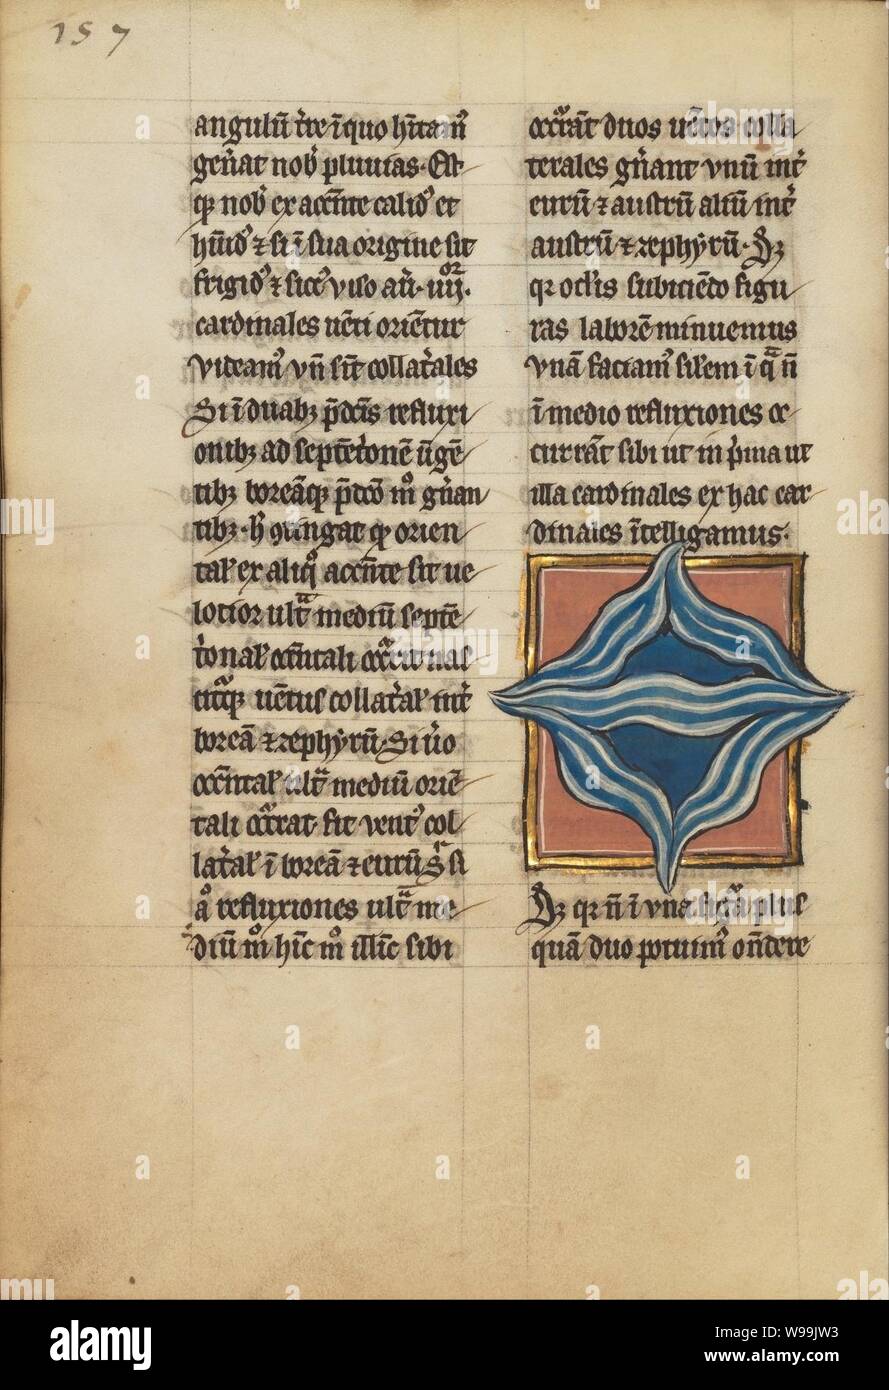 157
angulū t̄re ī quo h̄ītam᷒
gen̄at nob᷒ pluuias. Est
qꝫ nob᷒ ex accn̄te calid᷒ et
hūid᷒ ⁊ si ī sua origine sit
frigid᷒ ⁊ sicc᷒ viso aūt
cardinales uēti oriētur
videam᷒ vn̄ sūt collat̄ales
Si ī duabꝫ p̄dc̄is refluxi
onibꝫ ad septēt̄onē ūgē
tibꝫ boreāqꝫ p̄dc̄o m̊ gn̄an
tibꝫ. h̄ ꝯtingat qꝫ orien
tal᷒ ex aliq̊ accn̄te sit ue
locior ult̄ mediū septē
t̄onal᷒ occn̄tali occ̄rat nas
citᷓqꝫ uētus collat̄al᷒ int̄
boreā ⁊ zephyrū. Si ūo
occn̄tal᷒ ult̄ mediū oriē
tali occ̄rat fit vent᷒ col
lat̄al᷒ ī boreā ⁊ eurū Sī
refluxiones ult̄ me
diū m̊ hīc m̊ illīc sibi
occ̄rāt duos uētos colla
terales gn̄ant vnū int̄
eurū ⁊ austrū aliū int̄
austrū ⁊ zephyrū. Sꝫ
qr ocl̄is subiciēdo figu
ras laborē minuemus
vnā faciam᷒ sil̄em ī qᷓ n̄
ī medio refluxiones oc
currāt sibi ut in p̄ma ut
illa cardinales ex hac car
dinales ītelligamus.
Sꝫ qr n̄ ī vna figᷓa plus
quā duo potuim᷒ on̄dere
alamy
Image ID: W99JW3
www.alamy.com